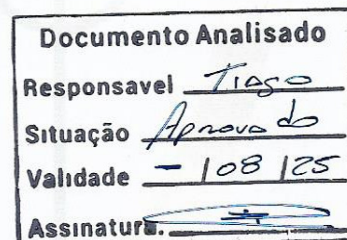 Documento Analisado
Responsavel Tiago
Situação Aprovado
Validade - / 08 / 25
Assinatura.